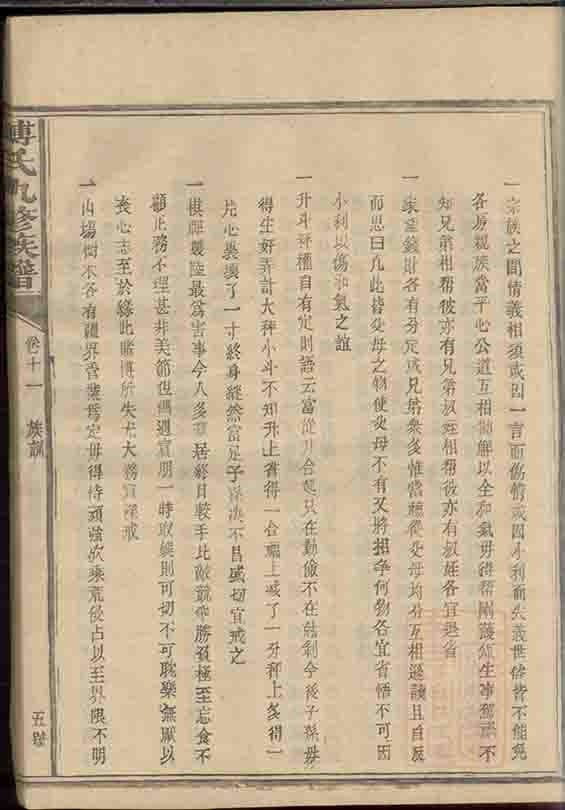 一宗族之間情義相須或因一言而傷情或因小利而失義世俗皆不能免
各房親族當平心公道互相勸解以全和氣毋得幫閒護短生事奮訟不
知兄弟相幫彼亦有兄弟叔姪相幫彼亦有叔姪各宜退省
一家產錢財各有分定或兄弟衆多惟當聽從父母均分互相遜讓且自反
而思曰凡此皆父母之物使父母不有又將相爭何物各宜省悟不可因
小利以傷和氣之誼
一升斗秤穜自有定則語云富從升合起只在勤儉不在尅剩今後子孫毋
得生好弄計大秤小斗不知升上省得一合福上減了一分秤上多得一
片心裏壞了一寸終身縱然富足子孫決不昌盛切宜戒之
一棋牌雙陸最爲害事今人多羣居終日較手比敵競爭勝負極至忘食不
顧正務不理甚非美節但偶遇賓朋一時取娛則可切不可耽樂無厭以
喪心志至於緣此賭博所失尤大務宜深戒
一山場樹木各有疆界舊業爲定毋得恃頑強欺乘荒侵占以至界限不明
傅氏九修族譜
卷十一
族訓
五號